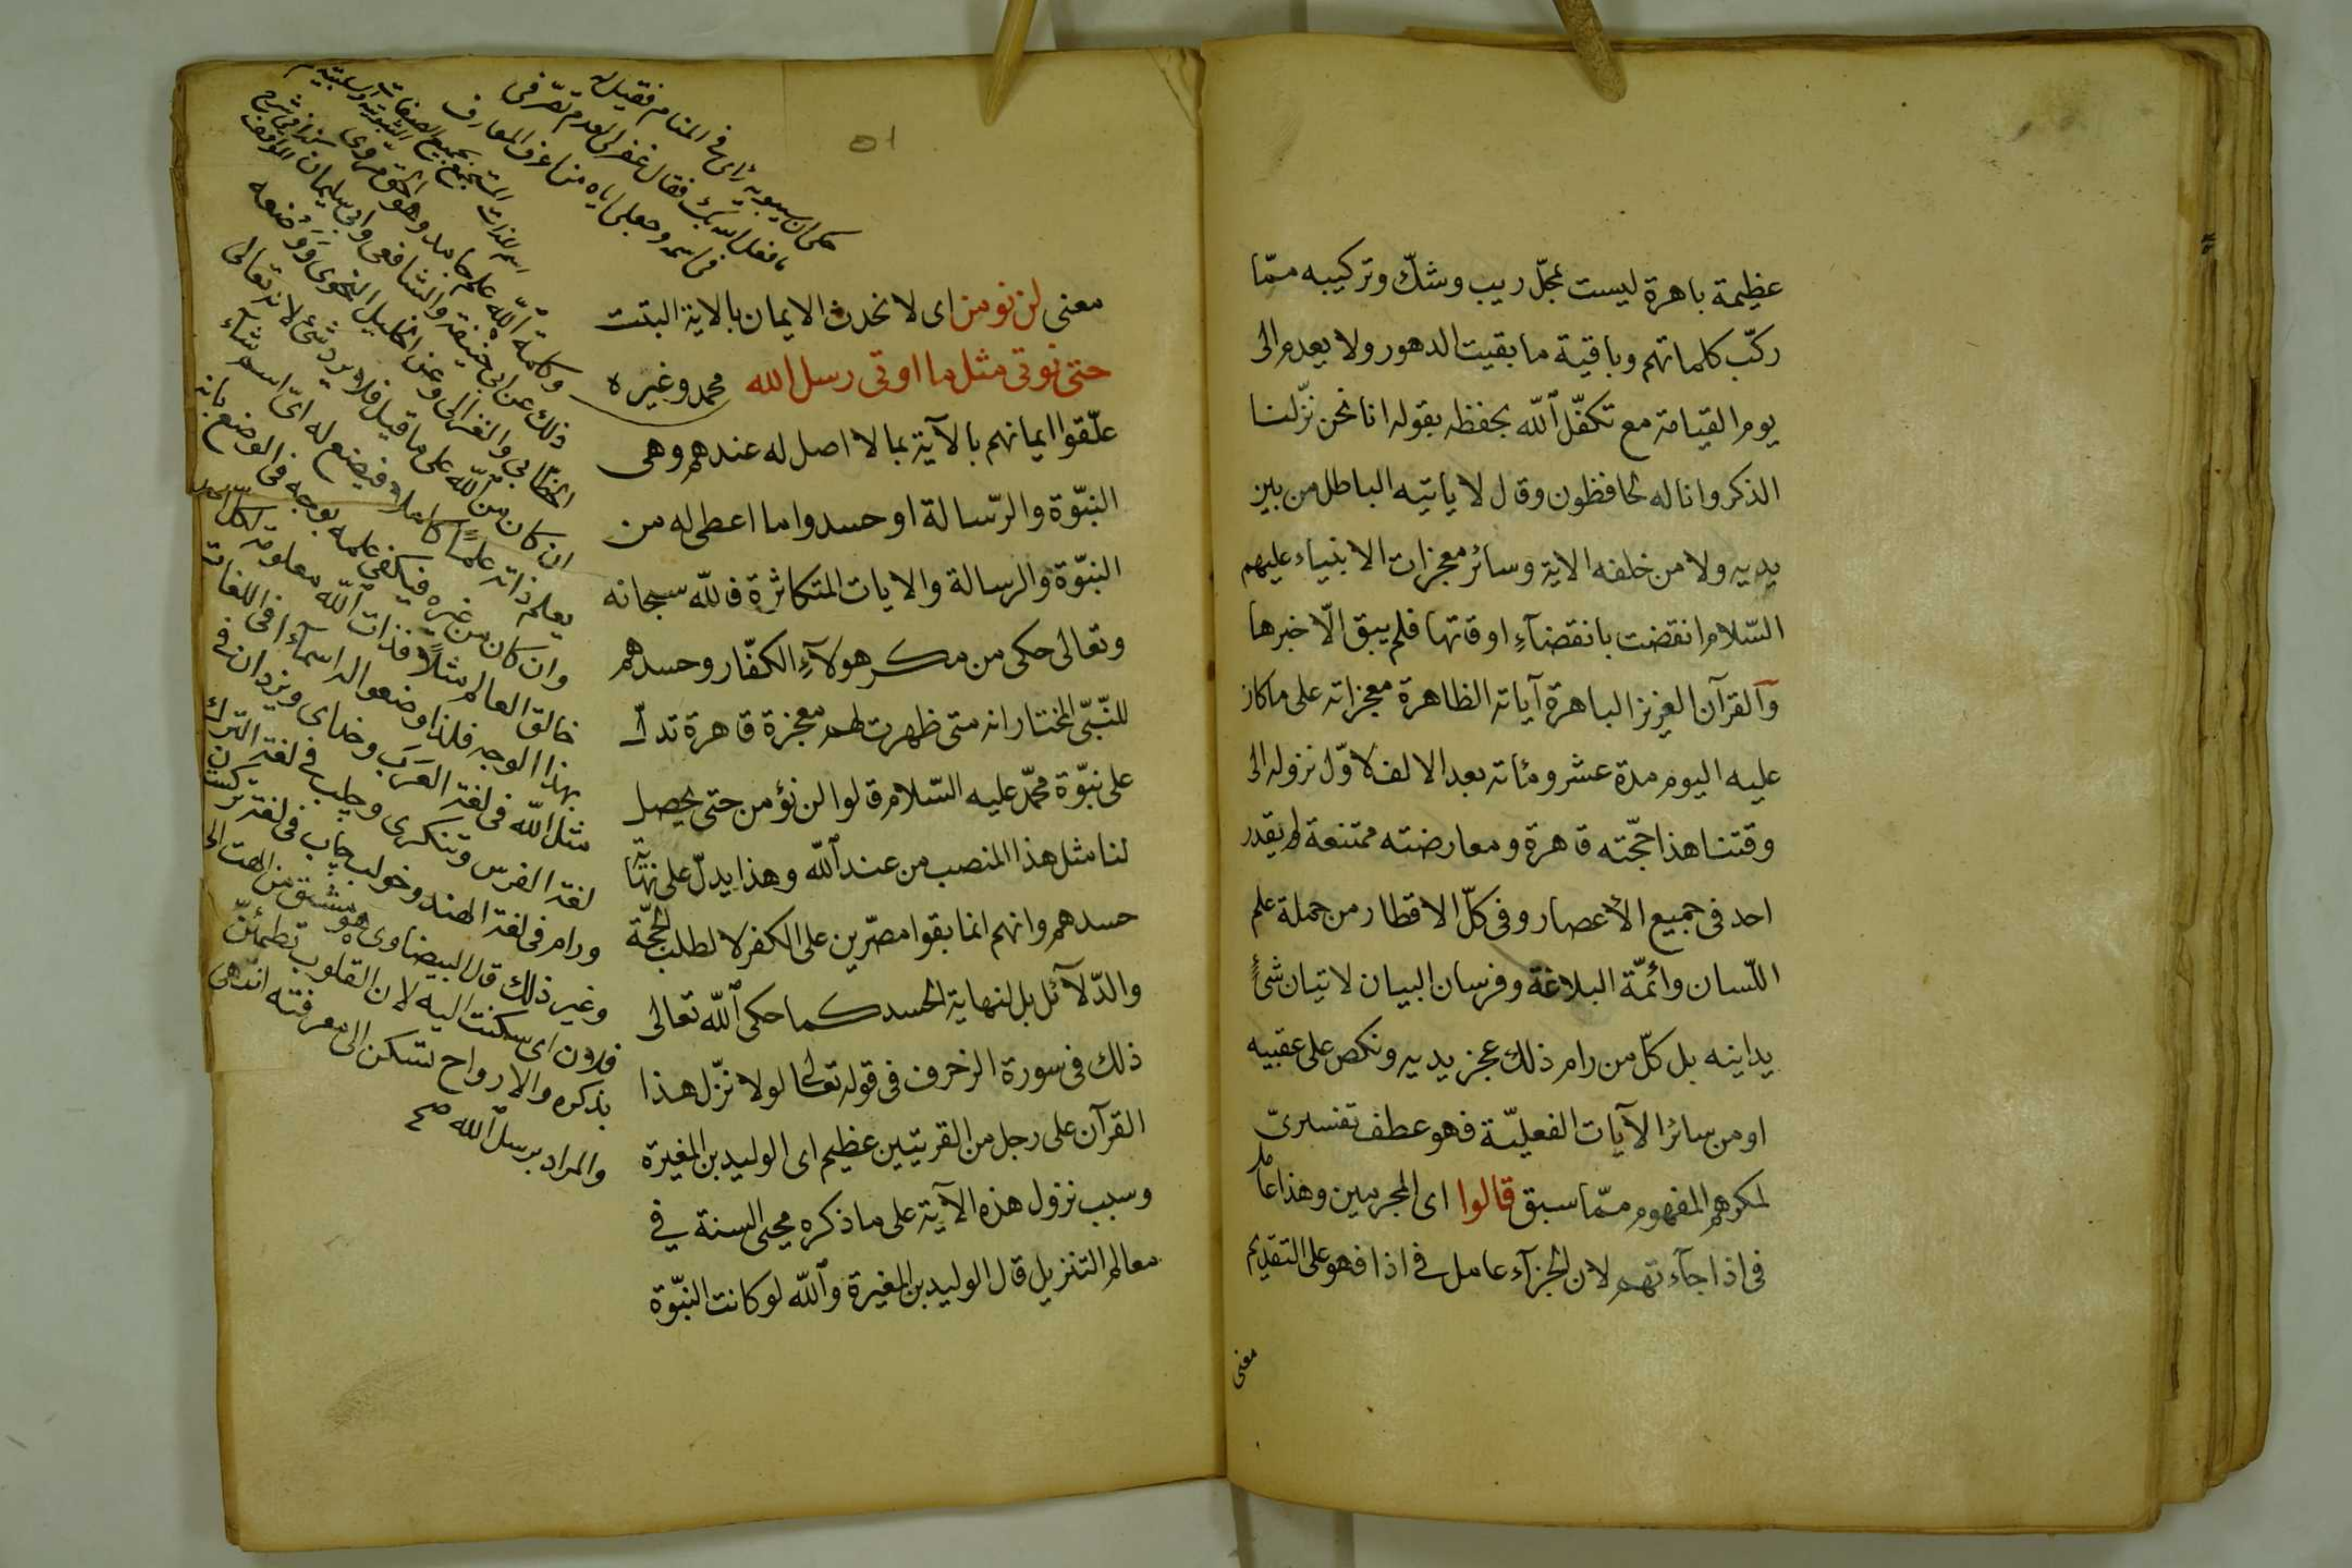 عظيمة باهرة ليست بمحلّ ريب وشكّ وتركيبه ممّا
ركّب كلماتهم وباقية ما بقيت الدهور ولا يعدم الى
يوم القيامة مع تكفّل الله بحفظه بقوله انا نحن نزّلنا
الذكر وانا له لحافظون وقال لا ياتيه الباطل من بين
يديه ولا من خلفه الاية وسائر معجزات الانبياء عليهم
السّلام انقضت بانقضآءِ اوقاتها فلم يبق الّا خبرها
وآلقرآن العزيز الباهرة آياته الظاهرة معجزاته على ما كان
عليه اليوم مدة عشر ومائة بعد الالف لاوّل نزوله الى
وقتنا هذا حجّته قاهرة ومعارضته ممتنعة لم يقدر
احد فى جميع الأعصار وفى كلّ الاقطار من جملة علم
اللّسان وأئمّة البلاغة وفرسان البيان لاتيان شئٍ
يداينه بل كلّ من رام ذلك عجز يديه ونكص على عقبيه
او من سائر الآيات الفعليّة فهو عطف تفسيرىّ
لمكرهم المفهوم ممّا سبق قالوا اى المجرمين وهذا عامل
فى اذا جآءتهم لان الجزآء عامل فى اذا فهو على التقديم
معنى
٥١
معنى لن نومن اى لا نحدث الايمان بالاية البتت
حتى نوتى مثل ما اوتى رسل الله محمد وغيره
علّقوا ايمانهم بالآية بما لا اصل له عندهم وهى
النبّوة والرّسالة او حسدوا ما اعطى له من
النبّوة والرسالة والايات المتكاثرة فللّه سبحانه
وتعالى حكى من مكر هولآءِ الكفّار وحسدهم
للنّبىّ المختار انه متى ظهرت لهم معجزة قاهرة تدلّ
على نبّوة محمّد عليه السّلام قالوا لن نؤمن حتى يحصل
لنا مثل هذا المنصب من عند الله وهذا يدلّ على نهاية
حسدهم وانهم انما بقوا مصّرين على الكفر لا لطلب الحجّة
والدّلآئل بل لنهاية الحسد كما حكى الله تعالى
ذلك فى سورة الزخرف فى قوله تعالى لولا نزّل هذا
القرآن على رجل من القريتين عظيم اى الوليد بن المغيرة
وسبب نزول هذه الآية على ما ذكره محيى السنة في
معالم التنزيل قال الوليد بن المغيرة والله لو كانت النبّوة
حكى ان سيبويه رائ فى المنام فقيل له
ما فعل الله بك فقال غفر لى لعدم تصّرفى
فى اسمه وجعلى اياه من اعرف المعارف
اسم للذات المستجمع بجميع الصفات
وكلمة الله علم جامد وهو الحق مروى
ذلك عن ابى حنيفة والشافعى وابى سليمان
الخطّابى والغزالى وعن الخليل النحوى ووَضعه
ان كان من الله على ما قيل فلا يرد شئ لانه تعالى
يعلم ذاته علمًا كاملا فيضع له اىّ اسم شآء
وان كان من غيره فيكفى علمه بوجه فى الوضع بانه
خالق العالم مثلًا فذات الله معلومة لكل احد
بهذا الوجه فلذا وضعوا له اسمآءا فى اللغات
مثل الله فى لغة العرَب وخداى ويزدان فى
لغة الفرس وتنكرى وچلب فى لغة الترك
ورام فى لغة الهند وخولب چاپ فى لغة
وغير ذلك قال البيضاوى هو مشتق من الهت الى
فلان اى سكنت اليه لان القلوب تطمئنّ
بذكره والارواح تسكن الى معرفته انتهى
والمراد برسل الله صح